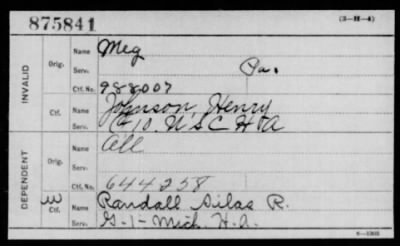 875841 (3-H-4)
INVALID
Orig. Name Meg
Serv. Pa.
Ctf. No. 988007
Ctf. Name Johnson, Henry
Serv. C 10. U S C H A
DEPENDENT
Orig. Name All
Serv.
Ctf. No. 644258
W Ctf. Name Randall Silas R.
Serv. G-1-Mich. H.A.